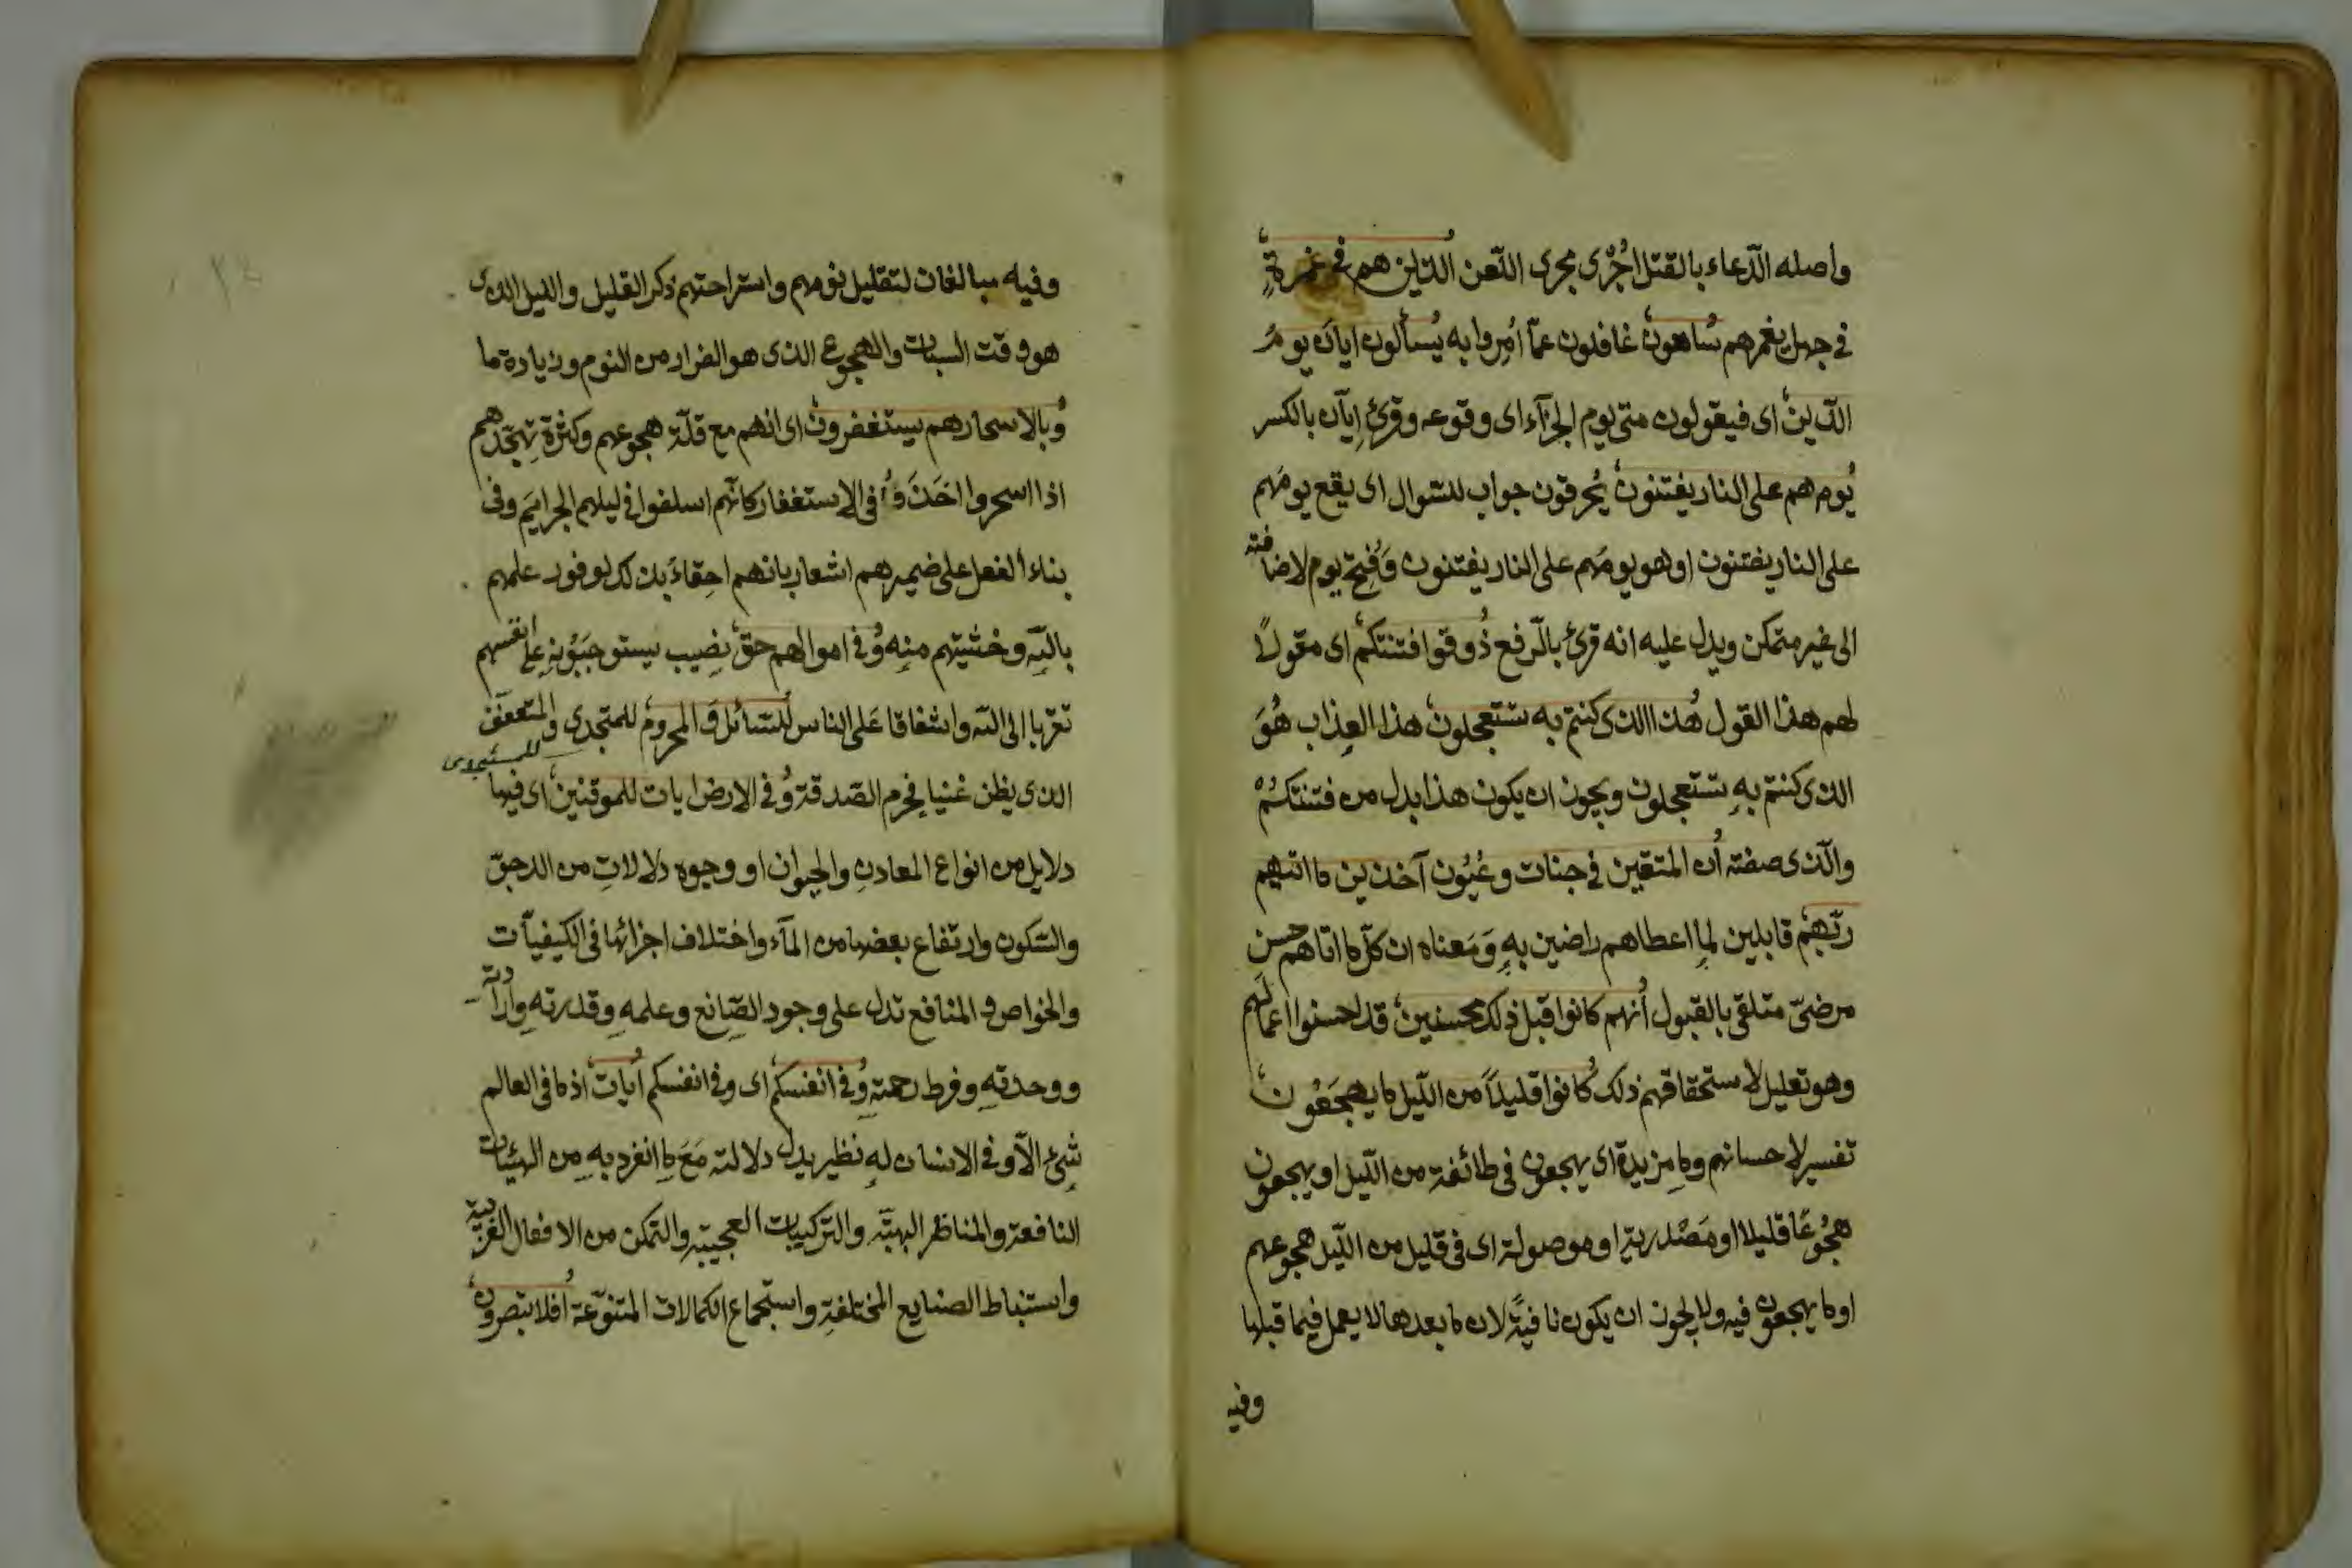 واصله الدّعاء بالقتل اجُرْی مجری اللّعن الّذین هم فی غمرةٍ
فی جهل یغمرهم ساهون غافلون عمّا اُمِروا به یُسألون ایّان یومُ
الدّین ای فیقولون متی یوم الجزآء ای وقوعه وقرئ اِیّان بالکسر
یوم هم علی النار یفتنون یُحرقون جواب للسّوال ای یقع یومَهم
علی النار یفتنون او هو یومَهم علی النار یفتنون وفُتِح یوم لاضافته
الی غیر متمکن ویدل علیه انه قرئ بالرّفع ذُوقوا فتنتکم ای مقولاً
لهم هذا القول هذا الذی کنتم به تستعجلون هذا العذاب هُوَ
الذی کنتم بهِ تستعجلون ویجون ان یکون هذا بدل من فتنتکم
والّذی صفته اُن المتقین فی جنات وعُیُون آخذین ما اتیهم
ربّهم قابلین لِما اعطاهم راضین بهِ وَمَعناه ان کلّ ما اتاهم حسن
مرضیّ متلقی بالقبول اُنهم کانوا قبل ذلک محسنین قد احسنوا اعمالهم
وهو تعلیل لاستحقاقهم ذلک کانوا قلیلاً من اللّیل ما یهجَعُون
تفسیر لاحسانهم وما مزیدة ای یهجعون فی طائفة من اللّیل او یهجعون
هُجُوعًا قلیلا او مَصْدریة او موصولة ای فی قلیل من اللّیل هجوعهم
او ما یهجعون فیه ولا یجون ان یکون نافیةً لان ما بعدها لا یعمل فیما قبلها
وفیه
وفیه مبالغات لتقلیل نومهم واستراحتهم ذکر القلیل واللیل الذی
هو وقت السبات والهجوع الذی هو الفرار من النوم وزیادة ما
وُبالاسحار هم یستغفرون ای انهم مع قلّة هجوعهم وکثرة تهجّدهم
اذا اسحروا اخذوا فی الاستغفار کانّهم اسلفوا فی لیلهم الجرایم وفی
بناء الفعل علی ضمیرهم اشعار بانهم احِقاءُ بذلک لوفور علمهم
باللّه وخشیتهم منه وُفی اموالهم حقّ نصِیب یستوجبُونه علی انفسهم
تقرّبا الی اللّه واشفاقا عَلی الناس للسّائل وَالمحروم للمتجدی والمتعفف
للمستجدی
الذی یظن غنیا فیحرم الصّدقة وُفی الارض ایات للموقنین ای فیها
دلایل من انواع المعادن والحیوان او وجوه دلالاتِ من الدحوّ
والسّکون وارتفاع بعضها من المآء واختلاف اجزائها فی الکیفیّات
والخواص والمنافع تدل علی وجود الصّانع وعلمهِ وقدرتهِ وارادته
ووحدتهِ وفرط رحمتهِ وُفی انفسکم ای وفی انفسکم اُیات اذ ما فی العالم
شئ الّا وفی الانسان لهِ نظیر یدل دلالته مَعَ ما انفرد بهِ مِن الهیئات
النافعة والمناظر البهیّة والترکیبات العجیبة والتمکن من الافعال الغریبة
واستنباط الصنایع المختلفةِ واستجماع الکمالات المتنوّعة اُفلا تبصرون